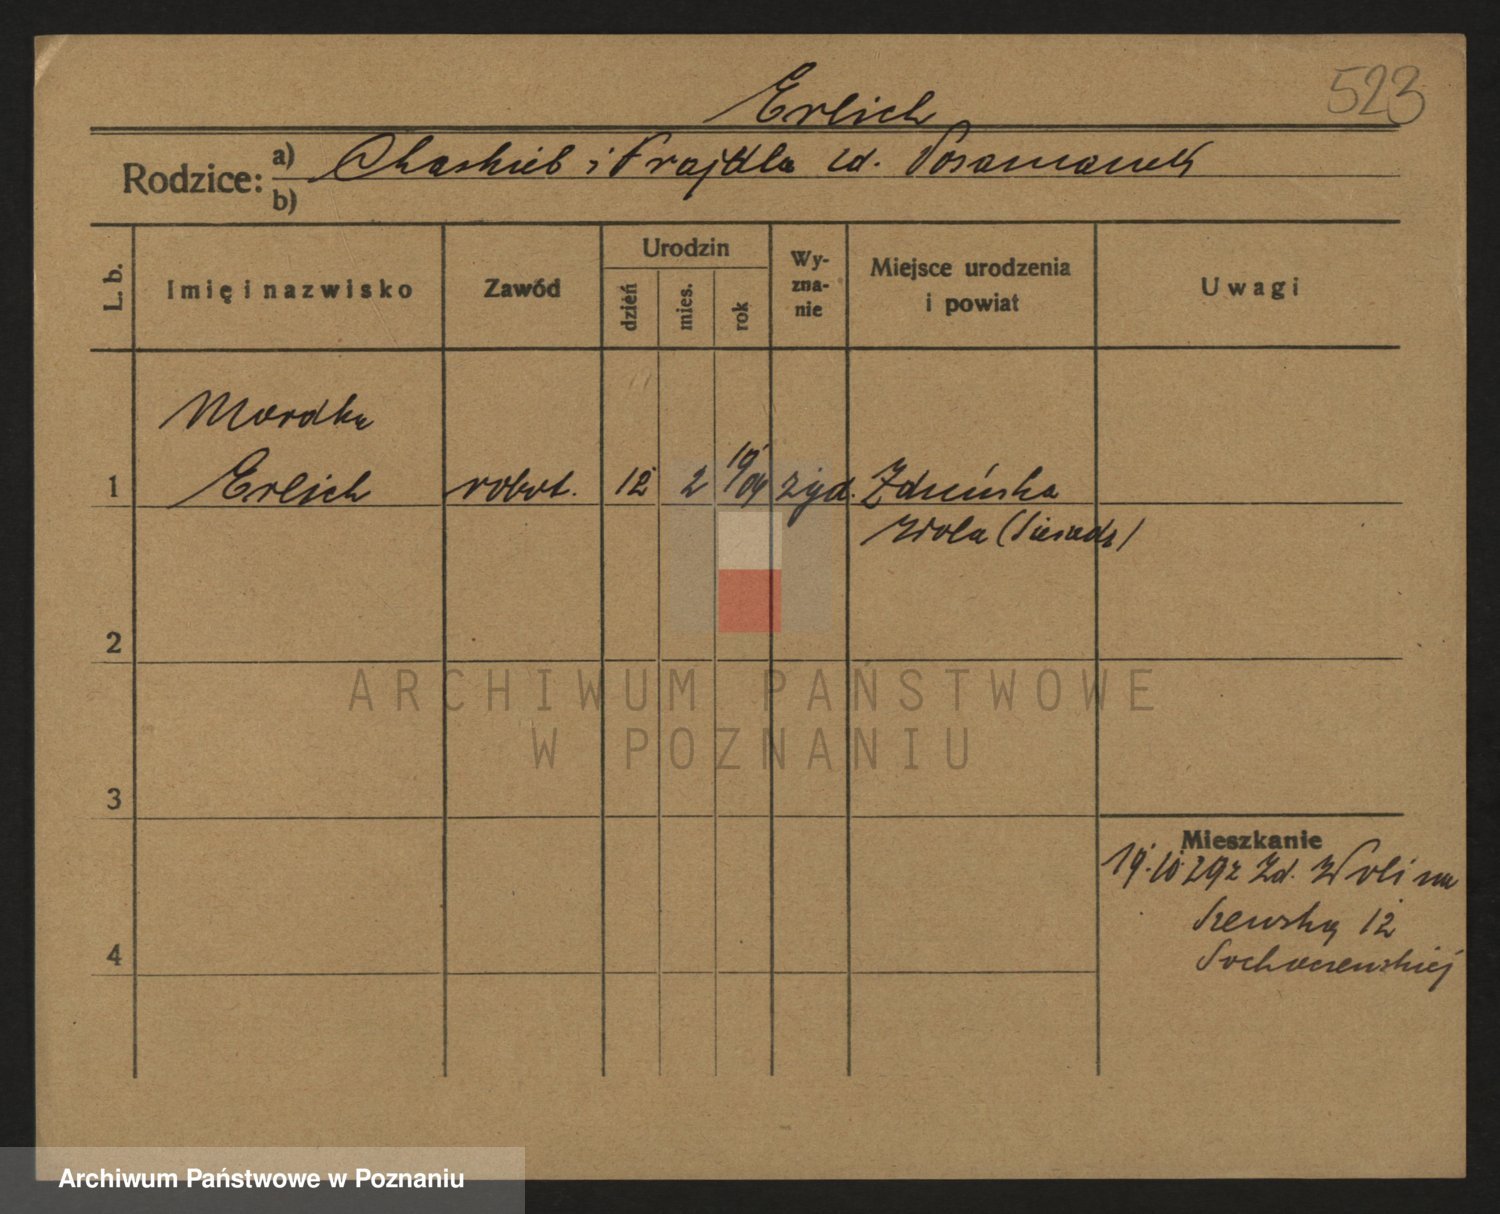 523
Erlich
Rodzice: a) Chaskiel i Frajdla zd. Posamanek
b)
L. b. Imię i nazwisko Zawód Urodzin dzień mies. rok Wy-zna-nie Miejsce urodzenia i powiat Uwagi
Mordka
1 Erlich robot. 12 2 19/04 żyd. Zduńska
Wola (Sieradz)
2
ARCHIWUM PAŃSTWOWE
W POZNANIU
3
Mieszkanie
19.10.29 z Zd. Woli na
Szewską 12
4 Sochaczewskiej
Archiwum Państwowe w Poznaniu